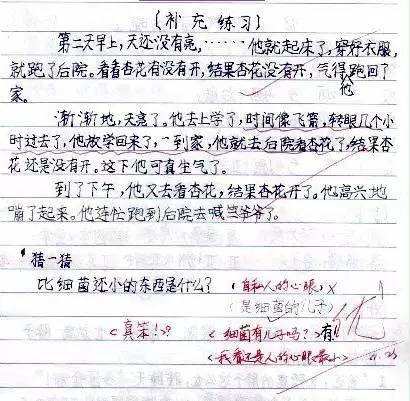 (补充练习)
第二天早上，天还没有亮，……他就起床了，穿好衣服，
就跑了后院。看看杏花有没有开，结果杏花没有开，气得跑回了
他
家。
渐渐地，天亮了。他去上学了，时间像飞箭，转眼几个小
时过去了，他放学回来了，一到家，他就去后院看杏花了，结果杏
花还是没有开。这下他可真生气了。
到了下午，他又去看杏花，结果杏花开了。他高兴地
嘣了起来。他连忙跑到后院去喊爷爷了。
猜一猜
比细菌还小的东西是什么？(自私人的心眼)×
(是细菌的儿子)
<真笨！>？ <细菌有儿子吗？>有 优
<我看还是人的心眼最小>